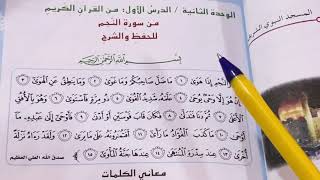 الوحدة الثانية / الدرس الأول: من القرآن الكريم
من سورة النجم
للحفظ والشرح
بِسْمِ اللَّهِ الرَّحْمَٰنِ الرَّحِيمِ
وَالنَّجْمِ إِذَا هَوَىٰ ١ مَا ضَلَّ صَاحِبُكُمْ وَمَا غَوَىٰ ٢ وَمَا يَنطِقُ عَنِ الْهَوَىٰ ٣
إِنْ هُوَ إِلَّا وَحْيٌ يُوحَىٰ ٤ عَلَّمَهُ شَدِيدُ الْقُوَىٰ ٥ ذُو مِرَّةٍ فَاسْتَوَىٰ ٦ وَهُوَ بِالْأُفُقِ
ثُمَّ دَنَا فَتَدَلَّىٰ ٨ فَكَانَ قَابَ قَوْسَيْنِ أَوْ أَدْنَىٰ ٩ فَأَوْحَىٰ إِلَىٰ عَبْدِهِ
مَا كَذَبَ الْفُؤَادُ مَا رَأَىٰ ١١ أَفَتُمَارُونَهُ عَلَىٰ مَا يَرَىٰ ١٢ وَلَقَدْ رَآهُ نَزْلَةً
أُخْرَىٰ ١٣ عِندَ سِدْرَةِ الْمُنتَهَىٰ ١٤ عِندَهَا جَنَّةُ الْمَأْوَىٰ ١٥ صدق الله العلي العظيم
معاني الكلمات
المسجد النبوي الشريف